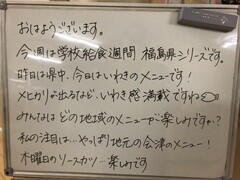 おはようございます。
今週は学校給食週間 福島県シリーズです。
昨日は県中、今日はいわきのメニューです！
メヒカリが出るなど、いわき感満載ですね
みんなは どの地域のメニューが楽しみですか？
私の注目は…やっぱり地元の会津のメニュー！
木曜日のソースカツ…楽しみです